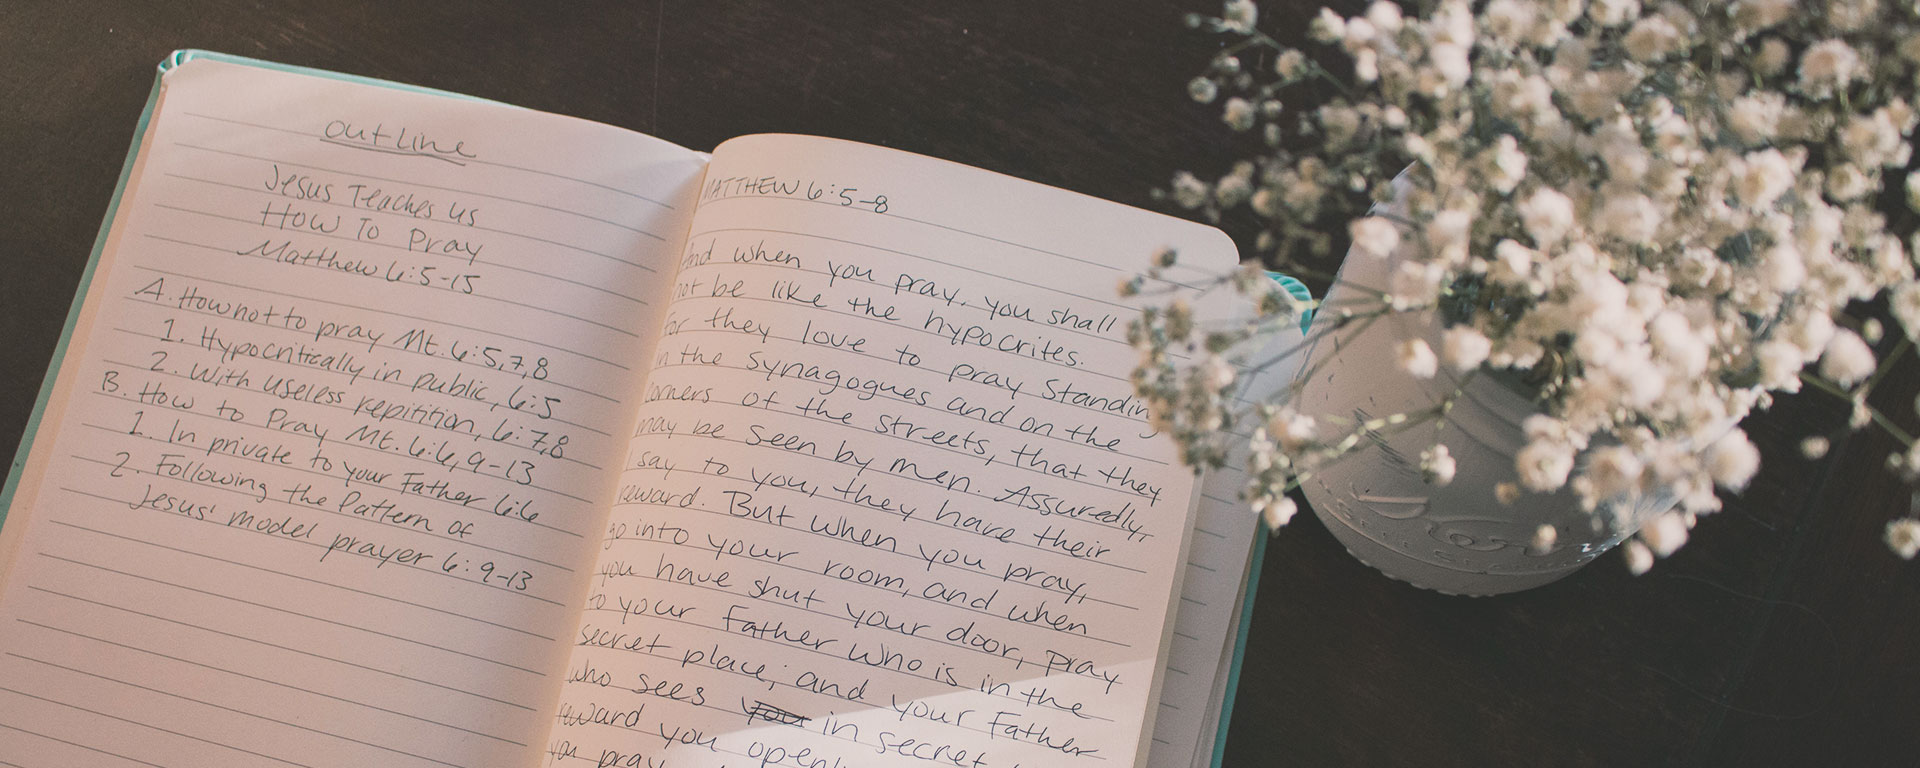 outline
Jesus Teaches us
How To Pray
Matthew 6:5-15
A. How not to pray Mt. 6:5,7,8
1. Hypocritically in public, 6:5
2. With useless repitition, 6:7,8
B. How to Pray Mt. 6:6, 9-13
1. In private to your Father 6:6
2. Following the Pattern of
Jesus' model prayer 6:9-13
MATTHEW 6:5-8
And when you pray, you shall
not be like the hypocrites.
For they love to pray standing
in the synagogues and on the
corners of the streets, that they
may be seen by men. Assuredly,
I say to you, they have their
reward. But when you pray,
go into your room, and when
you have shut your door, pray
to your Father who is in the
secret place; and your Father
who sees you in secret
reward you openly
you pray